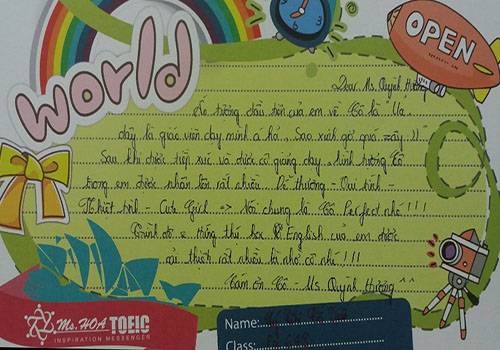 world
OPEN
Dear Ms. Quỳnh Hương
Ấn tượng đầu tiên của em về Cô là Ưa
đây là giáo viên dạy mình á hả. Sao xinh gớ quá zậy !!
Sau khi được tiếp xúc và được cô giảng dạy hình tượng Cô
trong em được nhân lên rất nhiều. Dễ thương - Vui tính -
Nhiệt tình - Cute Girl => Nói chung là Cô Perfect nhé !!!
trình độ e tiếng thứ học English của em được
cải thiện rất nhiều là nhờ cô nhé !!!
Cảm ơn Cô - Ms. Quỳnh Hương ^^
Ms. HOA TOEIC
INSPIRATION MESSENGER
Name:
Class: